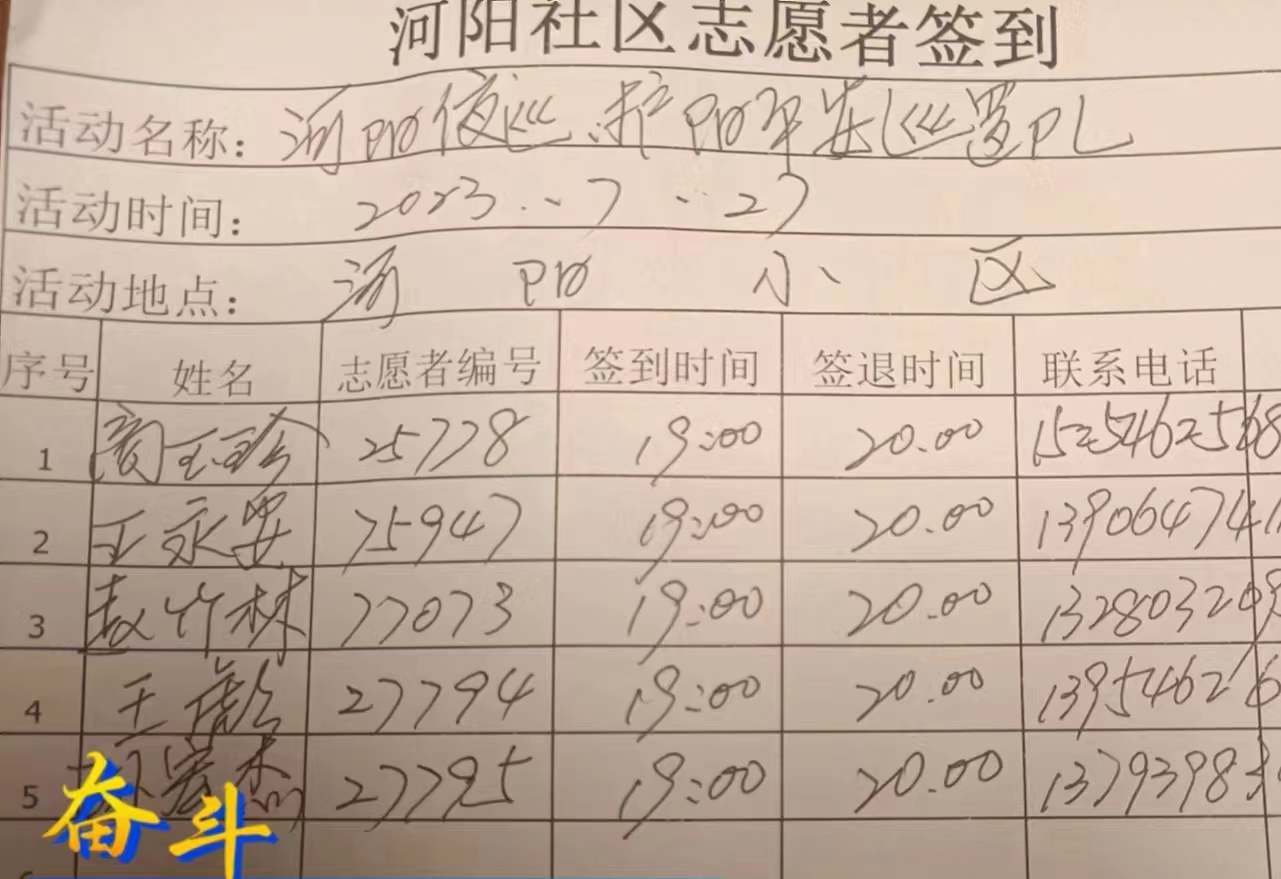 河阳社区志愿者签到
活动名称：河阳夜巡.护阳平安巡逻队
活动时间：2023..7..27
活动地点：河阳小区
序号 姓名 志愿者编号 签到时间 签退时间 联系电话
1 25778 19:00 20.00
2 王永安 75947 19:00 20.00 139064741
3 赵竹林 77073 19:00 20.00 132803209
4 王 27794 19:00 20.00 139546216
5 宏杰 27795 19:00 20.00 13793983
奋斗